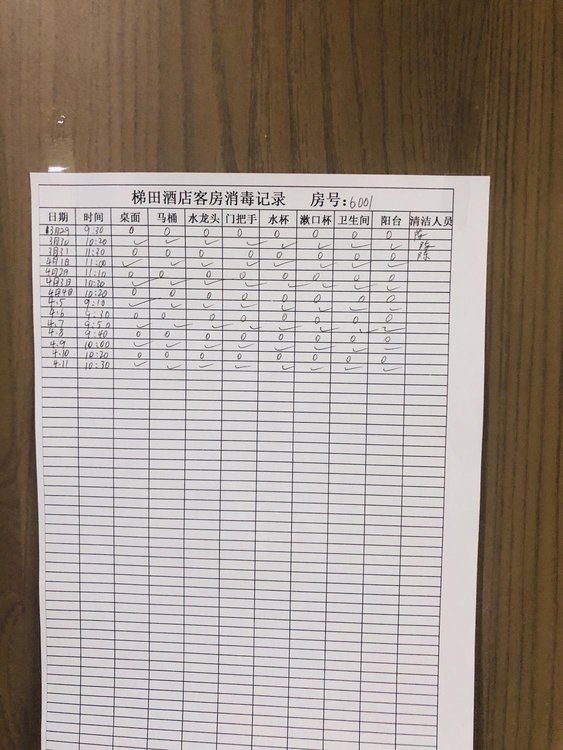 梯田酒店客房消毒记录 房号:6001
日期 时间 桌面 马桶 水龙头 门把手 水杯 漱口杯 卫生间 阳台 清洁人员
3月29 9:30 0 0 0 0 0 0 0 0 陈
3月30 10:20 ✓ ✓ ✓ ✓ ✓ ✓ ✓ ✓ 陈
3月31 11:30 0 0 0 0 0 0 0 0 陈
4月1日 11:00 ✓ ✓ ✓ ✓ ✓ ✓ ✓ ✓
4月2日 11:10 0 0 0 0 0 0 0 0
4月3日 10:20 ✓ ✓ ✓ ✓ ✓ ✓ ✓ ✓
4月4日 10:20 0 0 0 0 0 0 0 0
4.5 9:10 ✓ ✓ ✓ ✓ ✓ ✓ ✓ ✓
4.6 9:30 0 0 0 0 0 0 0 0
4.7 9:50 ✓ ✓ ✓ ✓ ✓ ✓ ✓ ✓
4.8 9:40 0 0 0 0 0 0 0 0
4.9 10:00 ✓ ✓ ✓ ✓ ✓ ✓ ✓ ✓
4.10 10:20 0 0 0 0 0 0 0 0
4.11 10:30 ✓ ✓ ✓ ✓ ✓ ✓ ✓ ✓